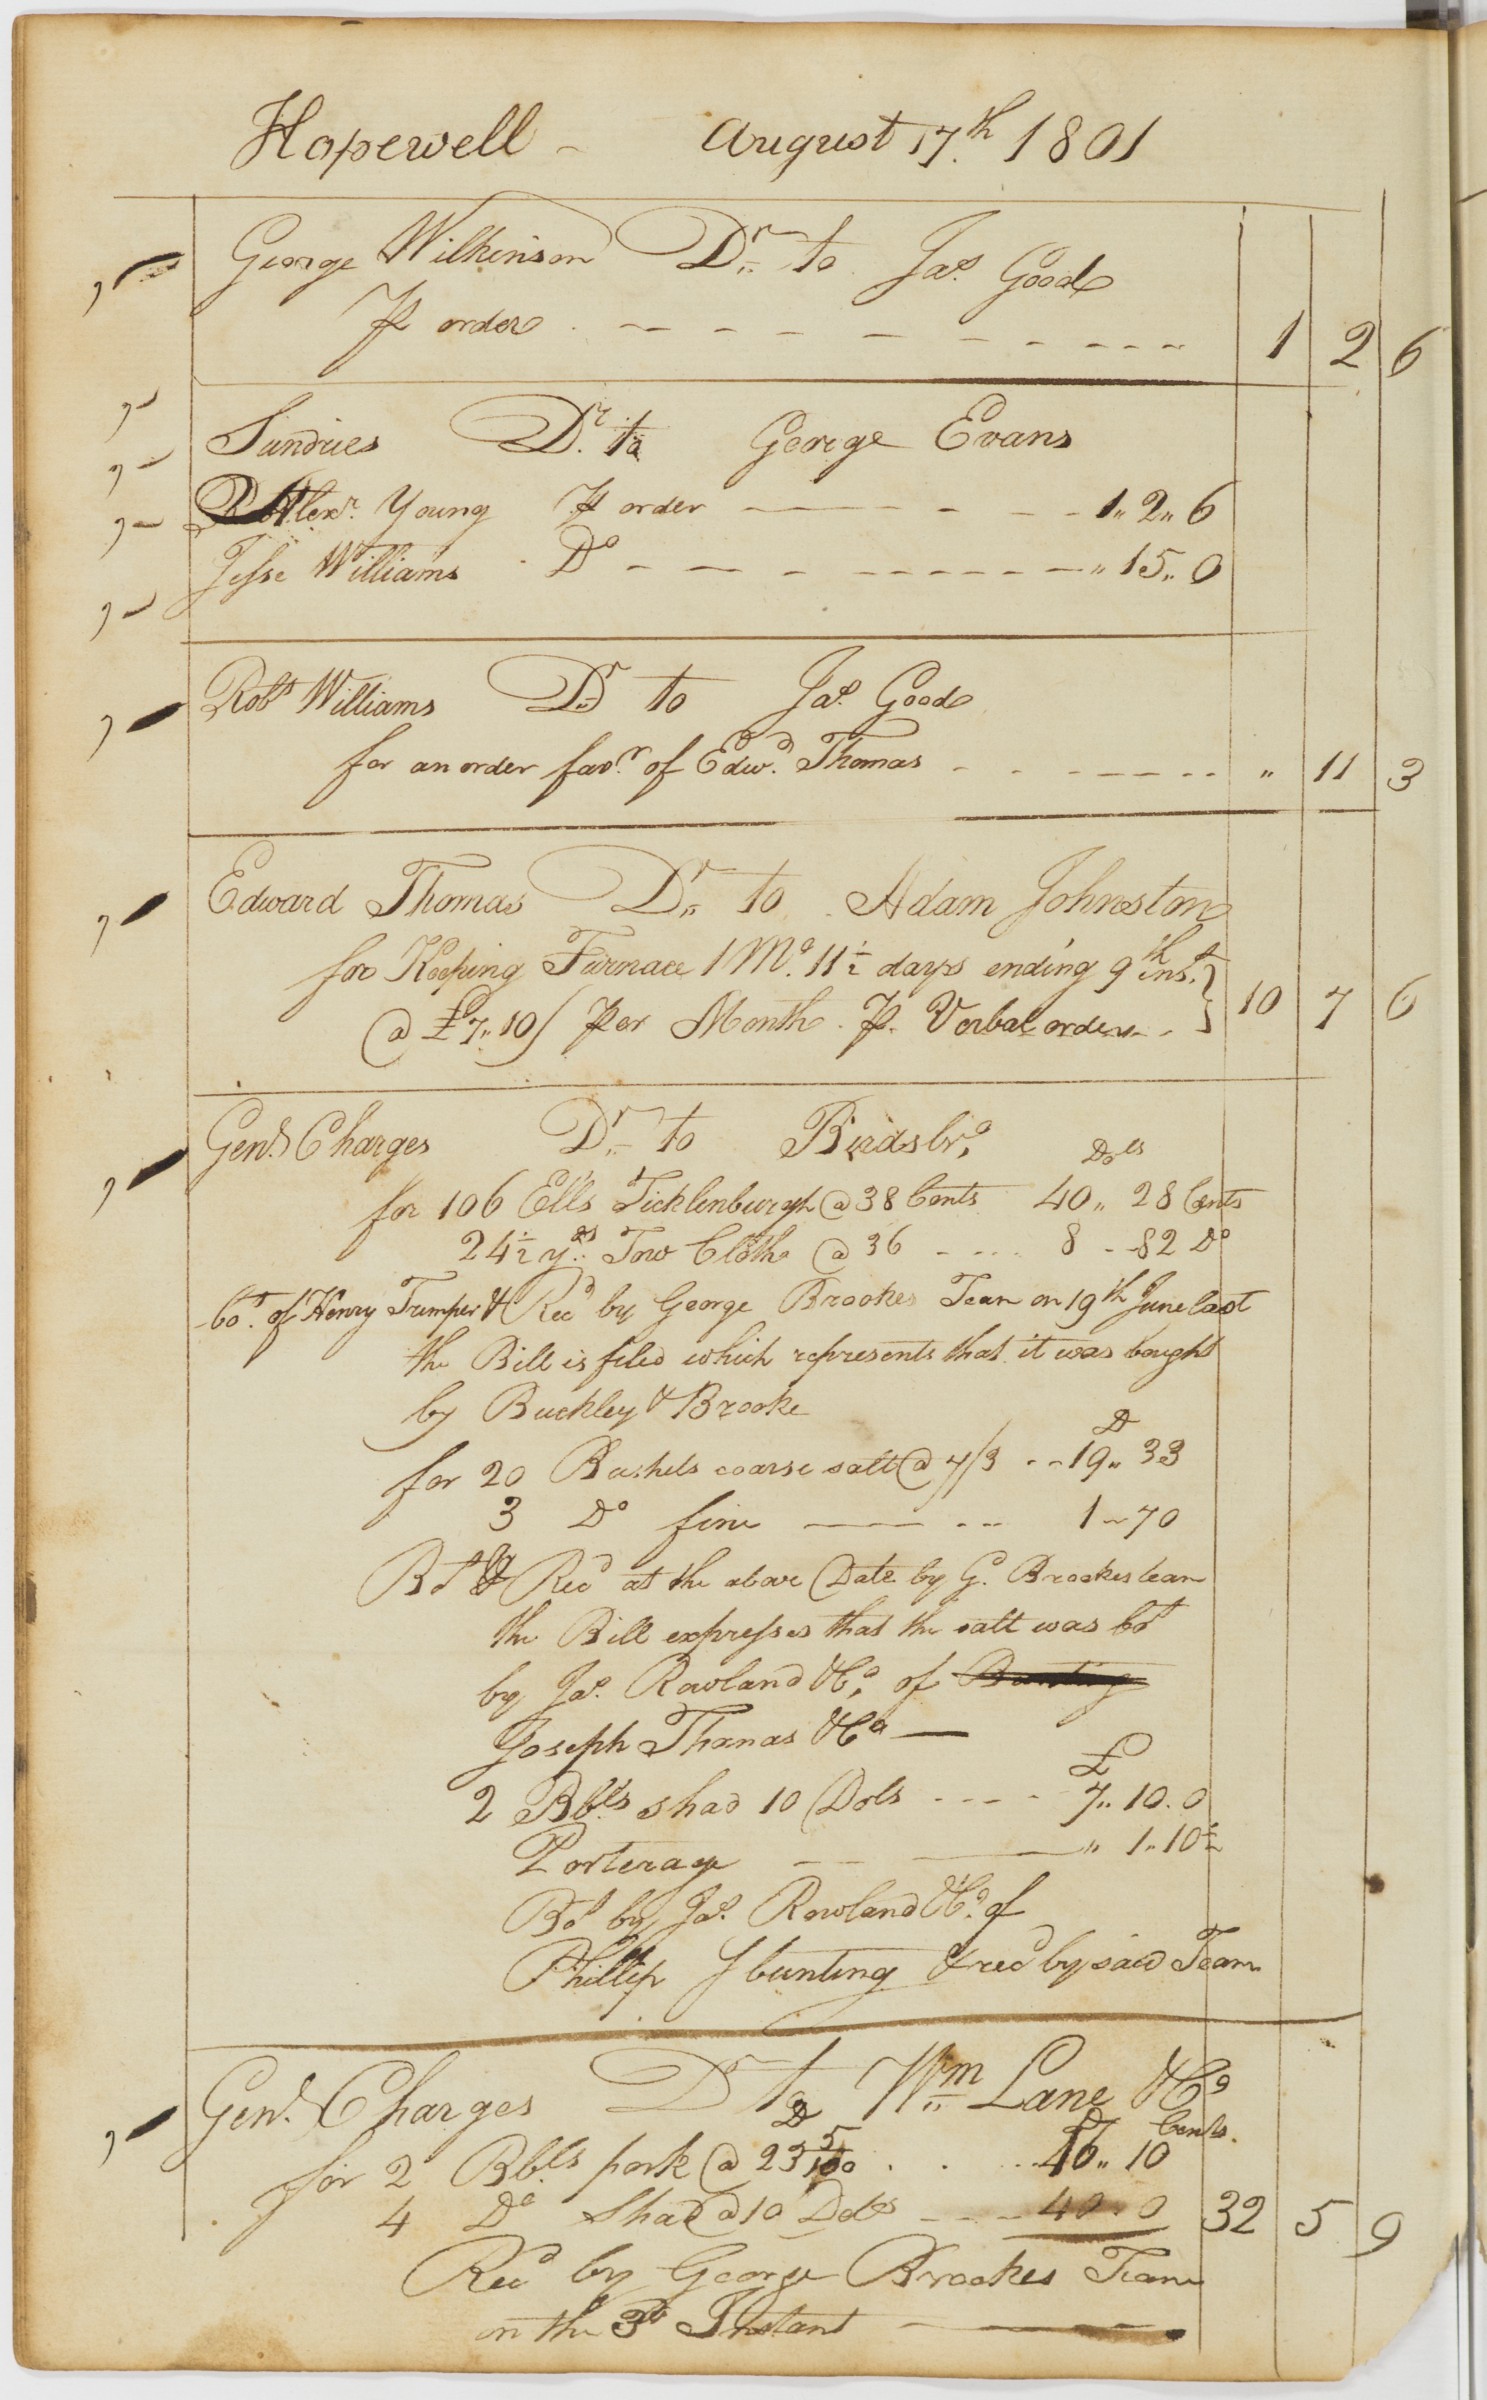 Hopewell - August 17th 1801
George Wilkinson Dr to Jas Good
P order - - - - - - - - - 1 2 6
Sundries Dr. to George Evans
Alexr. Young P order - - - - 1 „ 2 „ 6
Jesse Williams Do - - - - - - - - „ 15 „ 0
Robt Williams Dr to Jas. Good
for an order favr. of Edwd. Thomas - - - - - - - „ 11 3
Edward Thomas Dr to Adam Johnston
for Keeping Furnace 1 Mo. 11½ days ending 9th inst. }
@ £7 „ 10/ Per Month. P. Verbal order - - } 10 7 6
Genl. Charges Dr to Birdsbro.
Dols
for 106 Ells Ticklenburgh @ 38 Cents 40 „ 28 Cents
24½ yds. Tow Cloth @ 36 - - - - 8 - 82 Do
bot. of Henry Trumper & Recd by George Brookes Team on 19th June last
the Bill is filed which represents that it was bought
by Buckley & Brooke
D
for 20 Bushels coarse salt @ 7/3 - - 19 „ 33
3 Do fine - - - - 1 - 70
Bot & Recd at the above Date by G. Brookes team
the Bill expresses that the salt was bot
by Jas. Rowland & Co. of
Joseph Thamas & Co -
£
2 Bbls shad 10 Dols - - - - 7 „ 10 . 0
Porterage - - - „ 1 „ 10½
Bot by Jas. Rowland & Co. of
Phillip S bunting & recd by said Team
Genl. Charges Dr to Wm Lane & Co
D D Cents.
for 2 Bbls pork @ 23 5/100 . . . 46 „ 10
4 Do Shad @ 10 Dols - - - 40 . 0 32 5 9
Recd by George Brookes Team
on the 3d Instant -